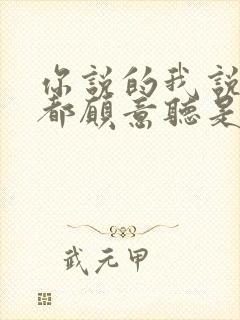 你說的我說
都願意聽是
武元甲